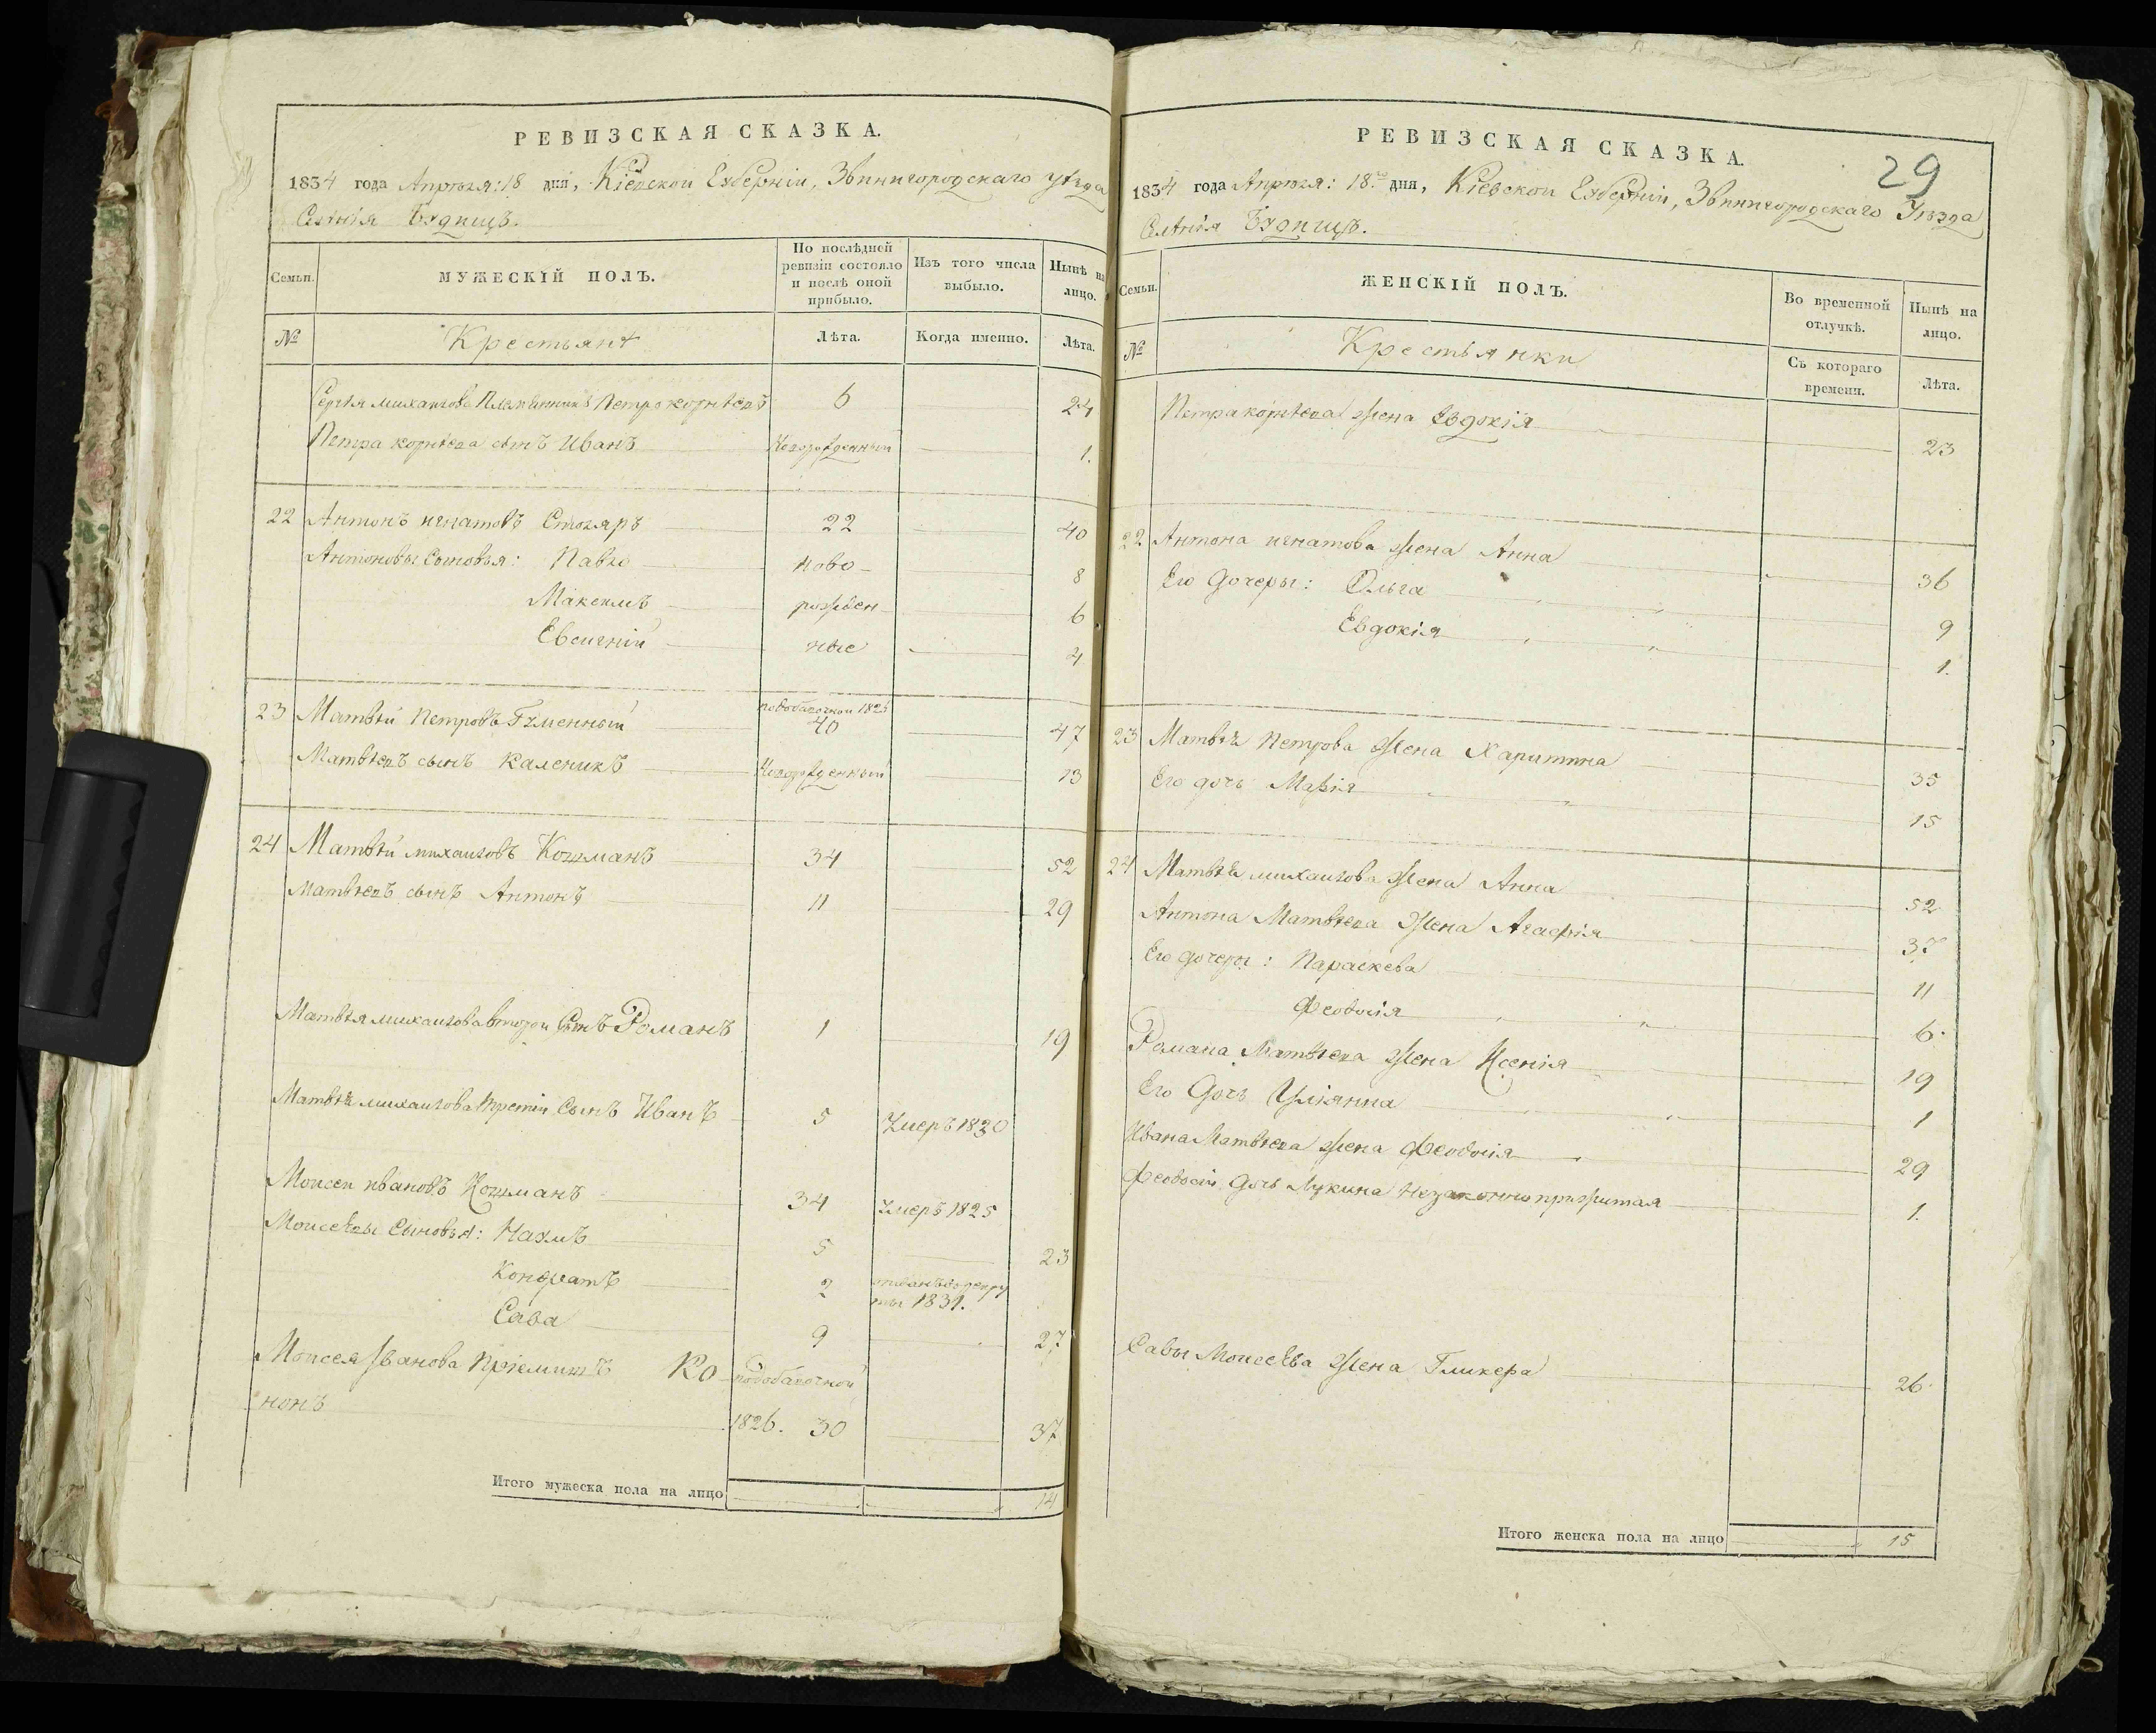 РЕВИЗСКАЯ СКАЗКА.
1834 года Апрѣля: 18 дня, Кіевской Губерніи, Звинигородскаго уѣзда
Селѣнія Будищъ.
Семьи.
МУЖЕСКІЙ ПОЛЪ.
По послѣдней ревизіи состояло и послѣ оной прибыло.
Изъ того числа выбыло.
Нынѣ на лицо.
№
Крестьянѣ
Лѣта.
Когда именно.
Лѣта.
Сергѣя михайлова Племѣнникъ Петро корнѣевъ 6 24
Петра корнѣева сынъ Иванъ Новорожденный 1.
22 Антонъ игнатовъ Столяръ 22 40
Антоновы Сыновья: Павло ново- 8
Максимъ рожден 6
Евсигній ные 4
23 Матвѣй Петровъ Гуменный 1826 40 47
Матвѣевъ сынъ Каленикъ Новорожденный 13
24 Матвѣй михайловъ Кошманъ 34 52
Матвѣевъ сынъ Антонъ 11 29
Матвѣя михайлова второй Сынъ Романъ 1 19
Матвѣя михайлова третій Сынъ Иванъ 5 Умеръ 1830
Моисей ивановъ Кошманъ 34 Умеръ 1825
Моисеѣвы Сыновья: Наумъ 5 23
Кондратъ 2 рекру
ты 1831.
Сава 9 27
Моисея Иванова Пріемышъ Ко-
нонъ 1826. 30 37
Итого мужеска пола на лицо 14
РЕВИЗСКАЯ СКАЗКА.
29
1834 года Апрѣля: 18го дня, Кіевской Губерніи, Звинигородскаго Уѣзда
Селѣнія Будищъ.
Семьи.
ЖЕНСКІЙ ПОЛЪ.
Во временной отлучкѣ.
Нынѣ на лицо.
№
Крестьянки
Съ котораго времени.
Лѣта.
Петра корнѣева жена Евдокія 23
22 Антона игнатова жена Анна 36
Его Дочеры: Ольга 9
Евдокія 1.
23 Матвѣя Петрова жена Харитина 35
Его дочь Марія 15
24 Матвѣя михайлова жена Анна 52
Антона Матвѣева жена Агафія 37
Его дочеры: Параскева 11
Феодосія 6.
Романа Матвѣева жена Ксенія 19
Его Дочь Уліянна 1
Ивана Матвѣева жена Феодосія 29
Феодосіи дочь Лукина незаконно прижитая 1.
Савы Моисеѣва жена Гликера 26.
Итого женска пола на лицо 15